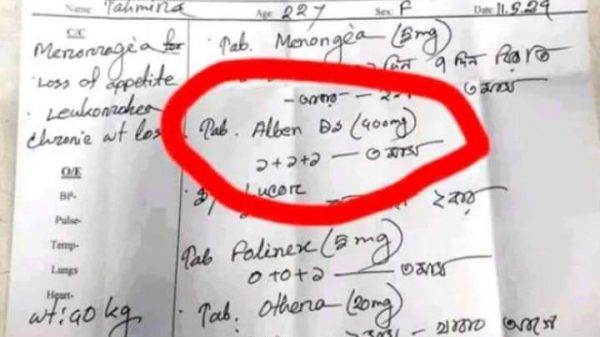 Name: Tahmina Age: 22y Sex: F Date: 11.5.24
C/C
Menorragea for
Loss of appetite
Leukorrhea
chronic wt loss
Tab. Menongea (5mg)
দিন ৭ দিন বিরতি
৩ মাস
Tab. Alben DS (400mg)
১+১+১ — ৩ মাস
Lucor
Tab Polinex (5mg)
০+০+১ — ৩ মাস
Tab. Othera (20mg)
খাবার আগে
O/E
BP-
Pulse-
Temp-
Lungs
Heart-
wt: 40 kg